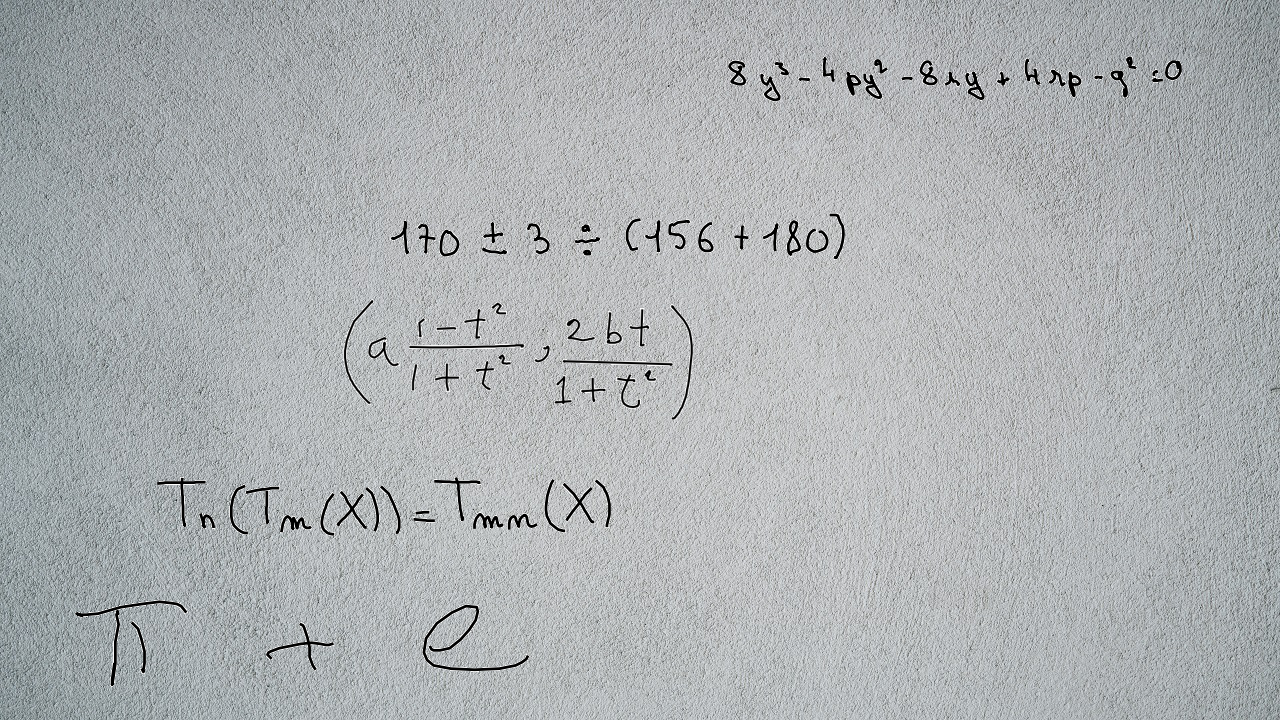 8y³ - 4py² - 8ry + 4rp - q² = 0
170 ± 3 ÷ (156 + 180)
(a (1 - t²)/(1 + t²), (2bt)/(1 + t²))
Tₙ(Tₘ(X)) = Tₘₙ(X)
π + e